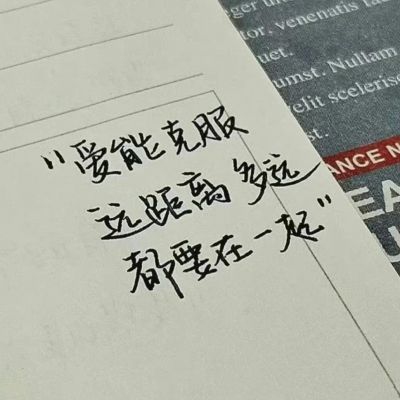 "爱能克服
远距离多远
都要在一起"
tor, venenatis
uet.
umst. Nullam
elit scelerisc
est.
ANCE N
EA